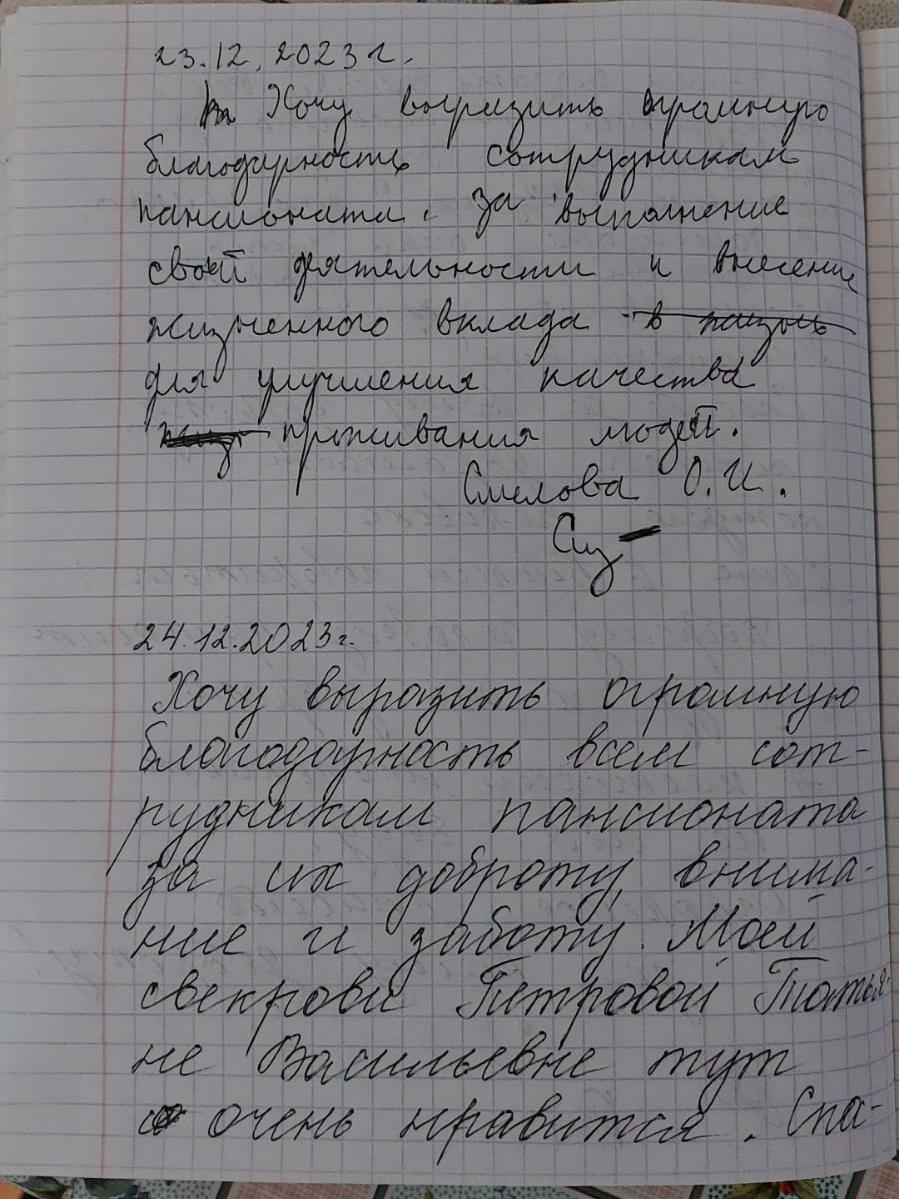 23.12.2023г.
Хочу выразить огромную
благодарность сотрудникам
пансионата, за выполнение
своей деятельности и внесение
жизненного вклада в жизнь
для улучшения качества
проживания людей.
Смелова О.И.
24.12.2023г.
Хочу выразить огромную
благодарность всем сот-
рудникам пансионата
за их доброту, внима-
ние и заботу. Моей
свекрови Петровой Татья-
не Васильевне тут
очень нравится. Спа-